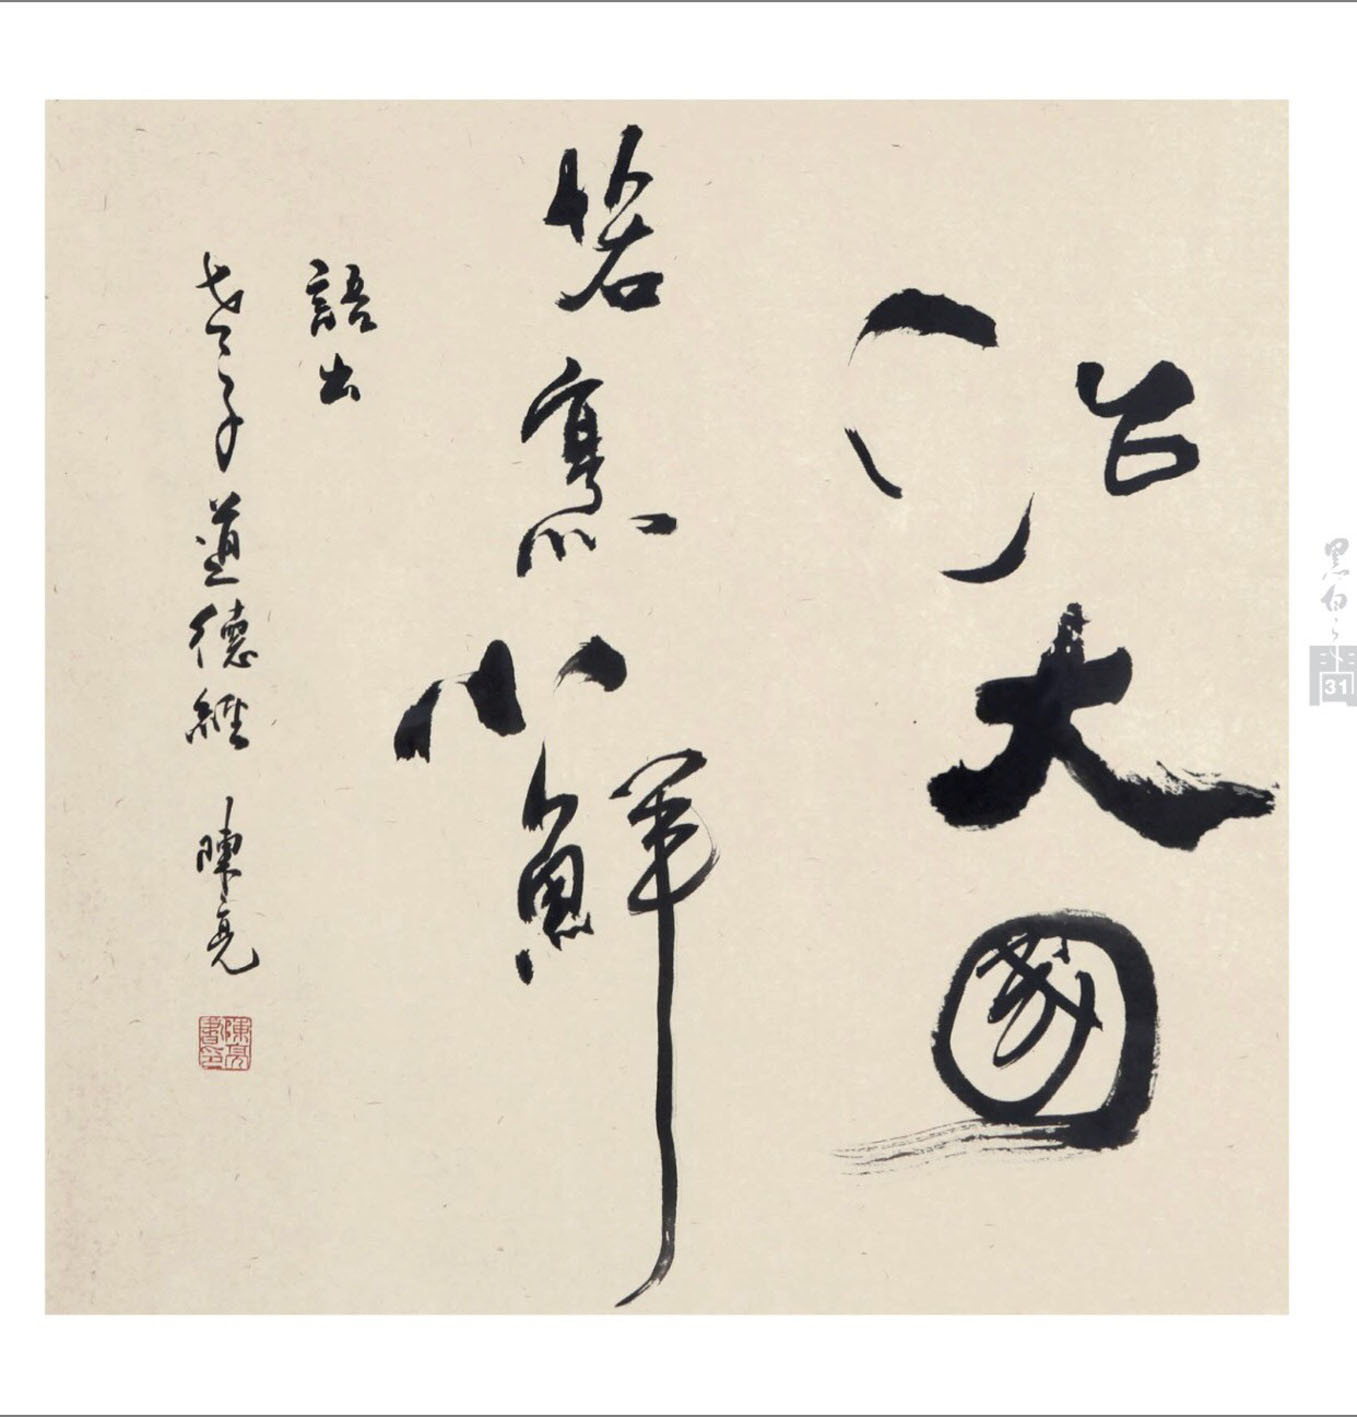 治大國
若烹小鮮
語出
老子道德經 陳亮
陳亮書印
黑白之間
31